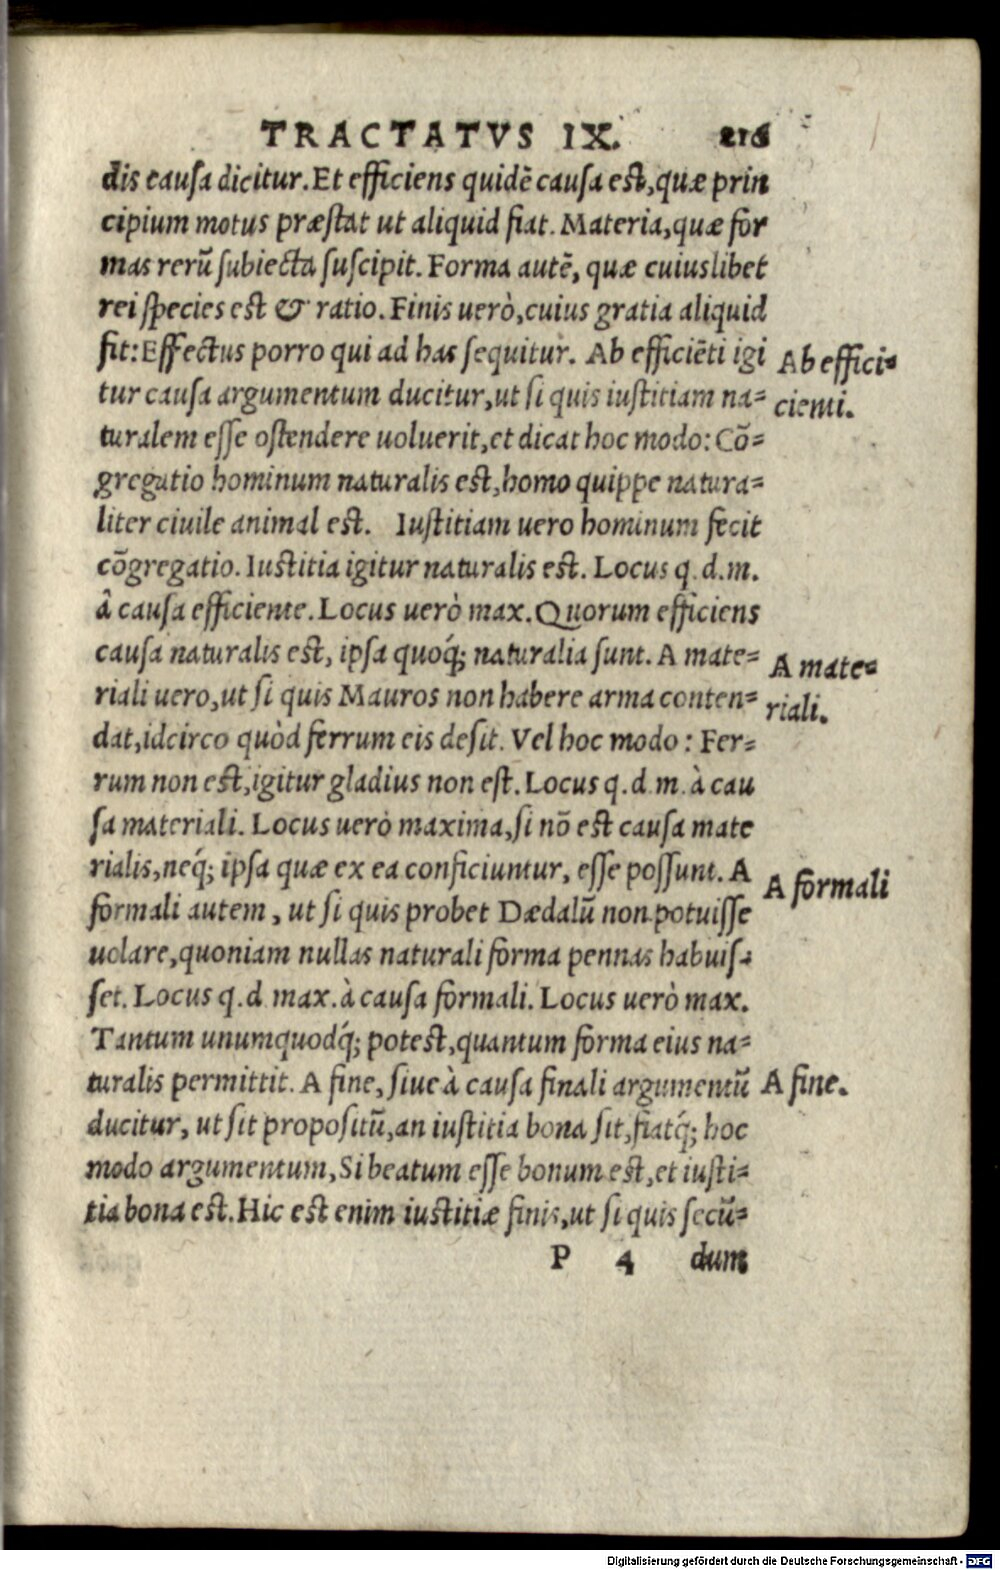 TRACTATVS IX. 216
dis causa dicitur. Et efficiens quidē causa est, quæ prin
cipium motus præstat ut aliquid fiat. Materia, quæ for
mas rerū subiecta suscipit. Forma autē, quæ cuiuslibet
rei species est & ratio. Finis uerò, cuius gratia aliquid
fit: Effectus porro qui ad has sequitur. Ab efficiēti igi
tur causa argumentum ducitur, ut si quis iustitiam na=
turalem esse ostendere uoluerit, et dicat hoc modo: Cō=
gregatio hominum naturalis est, homo quippe natura=
liter ciuile animal est. Iustitiam uero hominum fecit
cōgregatio. Iustitia igitur naturalis est. Locus q. d. m.
à causa efficiente. Locus uerò max. Quorum efficiens
causa naturalis est, ipsa quoq́; naturalia sunt. A mate=
riali uero, ut si quis Mauros non habere arma conten=
dat, idcirco quòd ferrum eis desit. Vel hoc modo: Fer=
rum non est, igitur gladius non est. Locus q. d. m. à cau
sa materiali. Locus uerò maxima, si nō est causa mate
rialis, neq́; ipsa quæ ex ea conficiuntur, esse possunt. A
formali autem, ut si quis probet Dædalū non potuisse
uolare, quoniam nullas naturali forma pennas habuis=
set. Locus q. d. max. à causa formali. Locus uerò max.
Tantum unumquodq́; potest, quantum forma eius na=
turalis permittit. A fine, siue à causa finali argumentū
ducitur, ut sit propositū, an iustitia bona sit, fiatq́; hoc
modo argumentum, Si beatum esse bonum est, et iusti=
tia bona est. Hic est enim iustitiæ finis, ut si quis secū=
P 4 dum
Ab effici=
cienti.
A mate=
riali.
A formali
A fine.
Digitalisierung gefördert durch die Deutsche Forschungsgemeinschaft - DFG